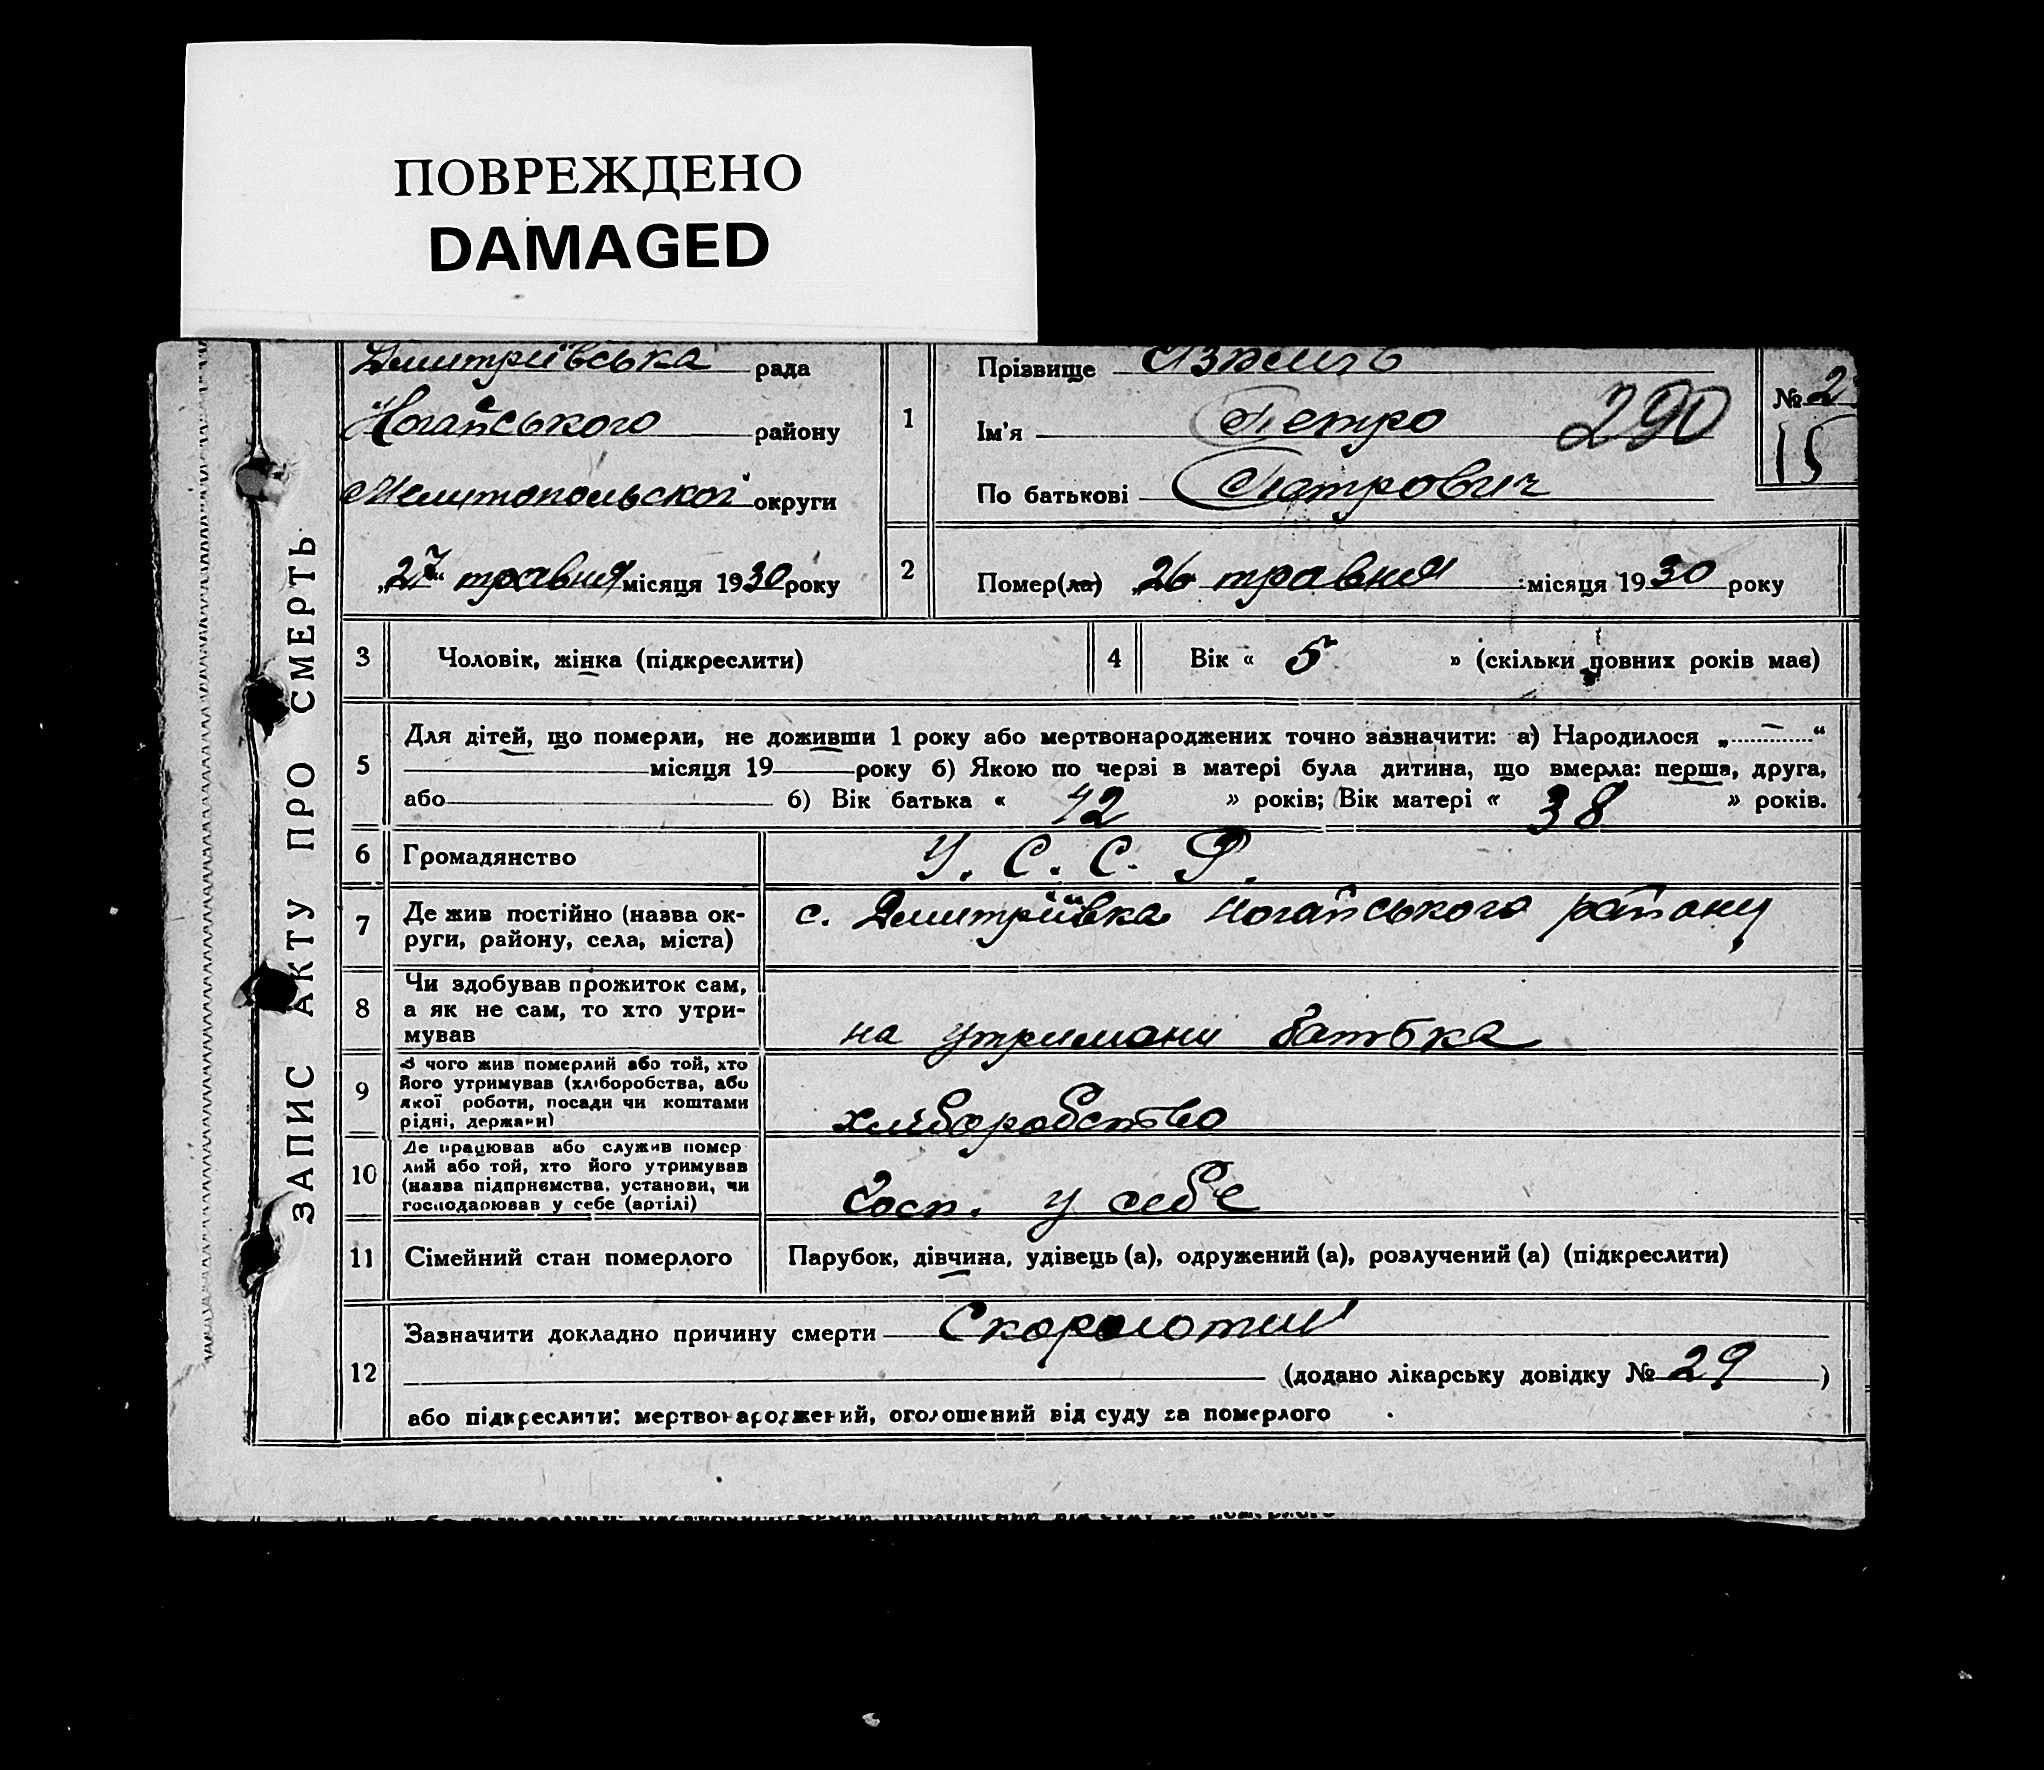 ПОВРЕЖДЕНО
DAMAGED
ЗАПИС АКТУ ПРО СМЕРТЬ
Дмитріівська рада
Ногайського району
Мелитопольскої округи
„27“ травня місяця 1930 року
1
Прізвище
Ім'я Петро 290
По батькові Петрович
№ 2
15
2
Помер(ла) „26 травня місяця 1930 року
3 Чоловік, жінка (підкреслити)
4 Вік « 5 » (скільки повних років має)
5
Для дітей, що померли, не доживши 1 року або мертвонароджених точно зазначити: а) Народилося „ — “
місяця 19 року б) Якою по черзі в матері була дитина, що вмерла: перша, друга,
або б) Вік батька « 42 » років; Вік матері « 38 » років.
6 Громадянство У. С. С. Р.
7
Де жив постійно (назва ок-
руги, району, села, міста)
с. Дмитріівка Ногайського району
8
Чи здобував прожиток сам,
а як не сам, то хто утри-
мував
на утримани батька
9
З чого жив померлий або той, хто
його утримував (хліборобства, або
якої роботи, посади чи коштами
рідні, держави)
хліборобство
10
Де працював або служив помер
лий або той, хто його утримував
(назва підприємства, установи, чи
господарював у себе (артілі)
Госп. у себе
11 Сімейний стан померлого Парубок, дівчина, удівець (а), одружений (а), розлучений (а) (підкреслити)
12
Зазначити докладно причину смерти
(додано лікарську довідку № 29 )
або підкреслити: мертвонароджений, оголошений від суду за померлого